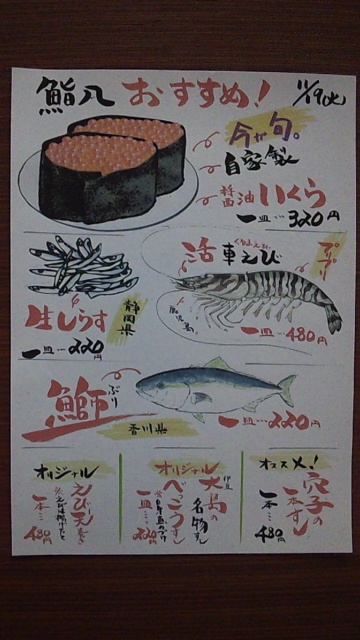 鮨八 おすすめ!
11/19(火)
今が旬。
自家製
醤油いくら
一皿…320円
活 車えび
くるまえび
プリプリ
鹿児島
一皿…480円
生しらす
静岡県
一皿…220円
鰤 ぶり
香川県
一皿…220円
オリジナル
えび天巻き
一本…
480円
オリジナル
伊豆大島の
名物すし
べっこうずし
一皿…
オススメ!
穴子の
一本すし
一本…
480円